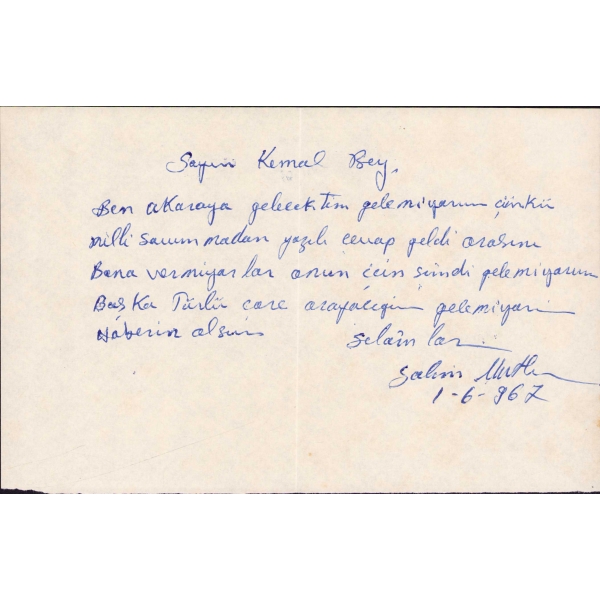 Sayın Kemal Bey,
Ben akaraya gelecektim gelemiyorum çünkü
milli savunmadan yazılı cevap geldi orasını
Bana vermiyorlar onun için şimdi gelemiyorum
Başka Türlü çare arayacağım gelemiyorum
Haberin olsun
Selâmlar
Salim
1-6-967